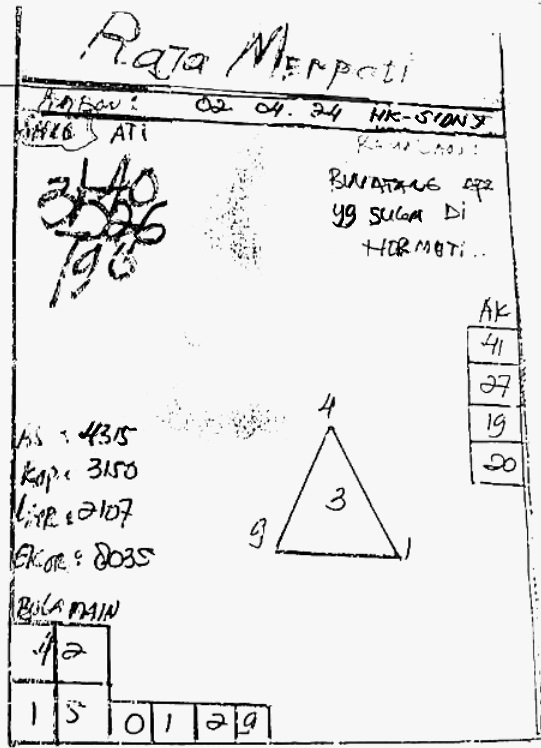 Raja Merpati
02. 04. 24 HK-SIDNY
ATI
BINATANG APA
yg SUKA Di
HORMATi..
3140
3526
196
AK
41
27
19
20
AS : 4315
Kop : 3150
2107
EKOR : 8035
4
3
9 1
BULA MAIN
4 2
1 5 0 1 2 9